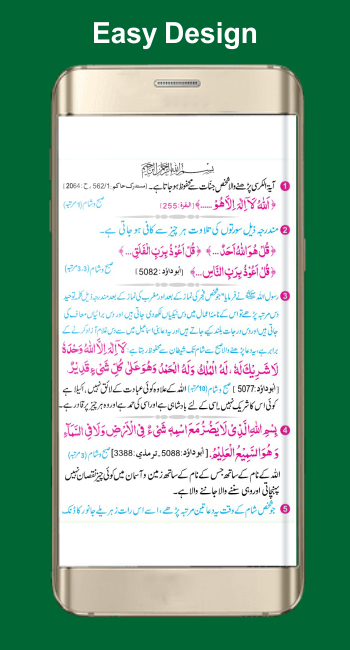 Easy Design
بسم اللہ الرحمن الرحیم
1 آیۃ الکرسی پڑھنے والا شخص جنات سے محفوظ ہو جاتا ہے۔ (مستدرک حاکم: 562/1، ح: 2064)
﴿ اَللّٰهُ لَآ اِلٰهَ اِلَّا هُوَ .....﴾ (البقرة: 255) صبح و شام (1 مرتبہ)
2 مندرجہ ذیل سورتوں کی تلاوت ہر چیز سے کافی ہو جاتی ہے۔
﴿ قُلْ هُوَ اللّٰهُ اَحَدٌ ...﴾ ﴿ قُلْ اَعُوْذُ بِرَبِّ الْفَلَقِ ...﴾
﴿ قُلْ اَعُوْذُ بِرَبِّ النَّاسِ ...﴾ (ابوداؤد: 5082) صبح و شام (3،3 مرتبہ)
3 رسول اللہ ﷺ نے فرمایا "جو شخص فجر کی نماز کے بعد اور مغرب کی نماز کے بعد مندرجہ ذیل کلمہ توحید
دس مرتبہ پڑھے تو اس کے نامہ اعمال میں دس نیکیاں لکھ دی جاتی ہیں اور دس برائیاں معاف کی
جاتی ہیں اور دس درجات بلند کیے جاتے ہیں اور یہ دعا بنی اسماعیل میں سے دس غلام آزاد کرنے کے
برابر ہے، یہ دعا پڑھنے والا صبح سے شام تک شیطان سے محفوظ رہتا ہے: لَآ اِلٰهَ اِلَّا اللّٰهُ وَحْدَهٗ
لَا شَرِيْكَ لَهٗ، لَهُ الْمُلْكُ وَلَهُ الْحَمْدُ وَهُوَ عَلٰى كُلِّ شَيْءٍ قَدِيْرٌ۔
[ابوداؤد: 5077] صبح و شام (10 مرتبہ) اللہ کے علاوہ کوئی عبادت کے لائق نہیں، اکیلا ہے
کوئی اس کا شریک نہیں، اسی کے لئے بادشاہی ہے اور اسی کی حمد ہے اور وہ ہر چیز پر قادر ہے۔
4 بِسْمِ اللّٰهِ الَّذِيْ لَا يَضُرُّ مَعَ اسْمِهٖ شَيْءٌ فِي الْاَرْضِ وَلَا فِي السَّمَآءِ
وَهُوَ السَّمِيْعُ الْعَلِيْمُ۔ [ابوداؤد: 5088، ترمذی: 3388] صبح و شام (3 مرتبہ)
اللہ کے نام کے ساتھ جس کے نام کے ساتھ زمین و آسمان میں کوئی چیز نقصان نہیں
پہنچاتی اور وہی سننے والا جاننے والا ہے۔
5 جو شخص شام کے وقت یہ دعا تین مرتبہ پڑھے، اسے اس رات زہریلے جانور کا ڈنک